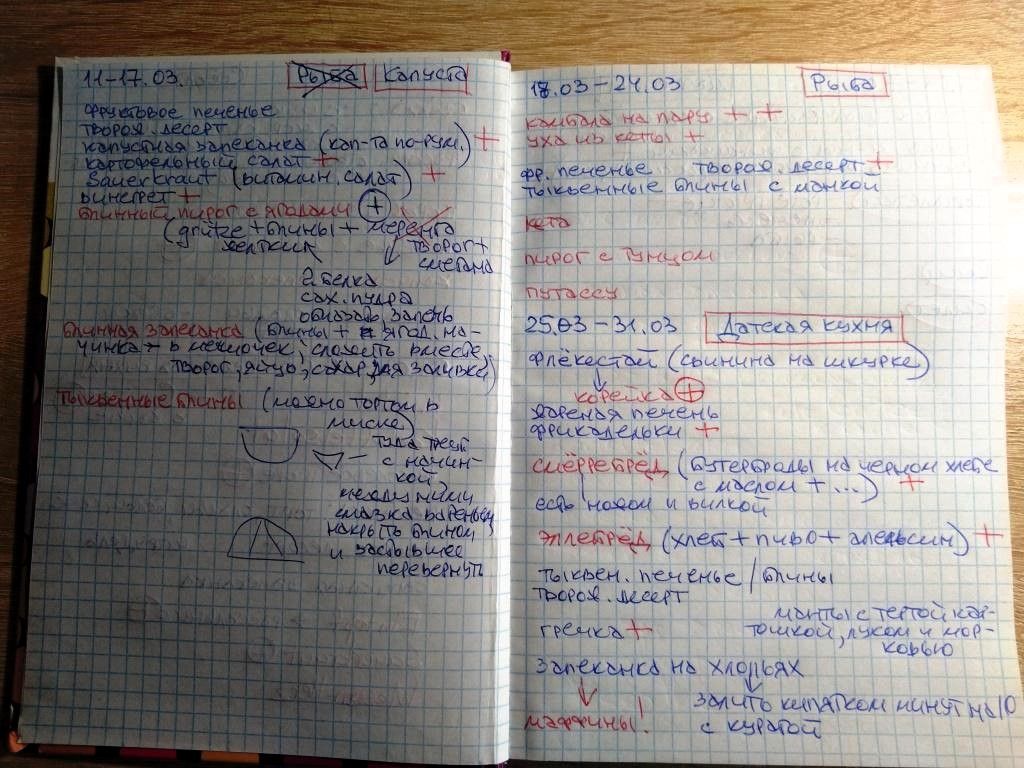 11-17.03. Рыба Капуста
фруктовое печенье
творож. десерт
капустная запеканка (кап-та по-рум.) +
картофельный салат +
Sauerkraut (витамин. салат) +
винегрет +
блинный пирог с ягодами +
(grütze + блины + меренга
желтки творог +
сметана
2 белка
сах. пудра
обмазать, запечь
блинная запеканка (блины + ягод. на-
чинка → в мешочек, сложить вместе,
творог, яйцо, сахар для заливки)
тыквенные блины (можно тортом в
миске)
туда треуг.
с начин-
кой
между ними
смазка вареньем,
накрыть блином
и застывшее
перевернуть
18.03 - 24.03 Рыба
камбала на пару + +
уха из кеты +
фр. печенье творож. десерт +
тыквенные блины с манкой
кета
пирог с тунцом
путассу
25.03 - 31.03 Датская кухня
флёкестай (свинина на шкурке)
корейка +
жареная печень
фрикадельки +
смёрребрёд (бутерброды на черном хлебе
с маслом + ...) +
есть ножом и вилкой
эллебрёд (хлеб + пиво + апельсин) +
тыквен. печенье / блины
творож. десерт
манты с тертой кар-
тошкой, луком и мор-
ковью
гречка +
запеканка на хлопьях
маффины!
залить кипятком минут на 10
с курагой